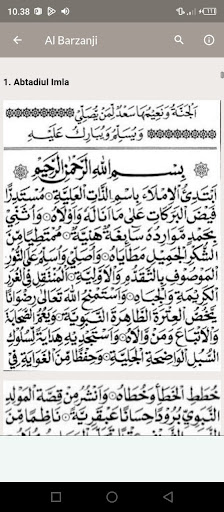 10.38
Al Barzanji
1. Abtadiul Imla
الجنة ونعيمها سعد لمن يصلي
ويسلم ويبارك عليه
بسم الله الرحمن الرحيم
ابتدئ الإملاء باسم الذات العلية مستدرا
فيض البركات على ما أناله وأولاه وأثني
بحمد موارده سائغة هنية ممتطيا من
الشكر الجميل مطاياه وأصلي وأسلم على النور
الموصوف بالتقدم والأولية المنتقل في الغرر
الكريمة والجباه وأستمنح الله تعالى رضوانا
يخص العترة الطاهرة النبوية ويعم الصحابة
والأتباع ومن والاه وأستجديه هداية لسلوك
السبل الواضحة الجلية وحفظا من الغواية في
خطط الخطأ وخطاه وأنشر من قصة المولد
النبوي برودا حسانا عبقرية ناظما من